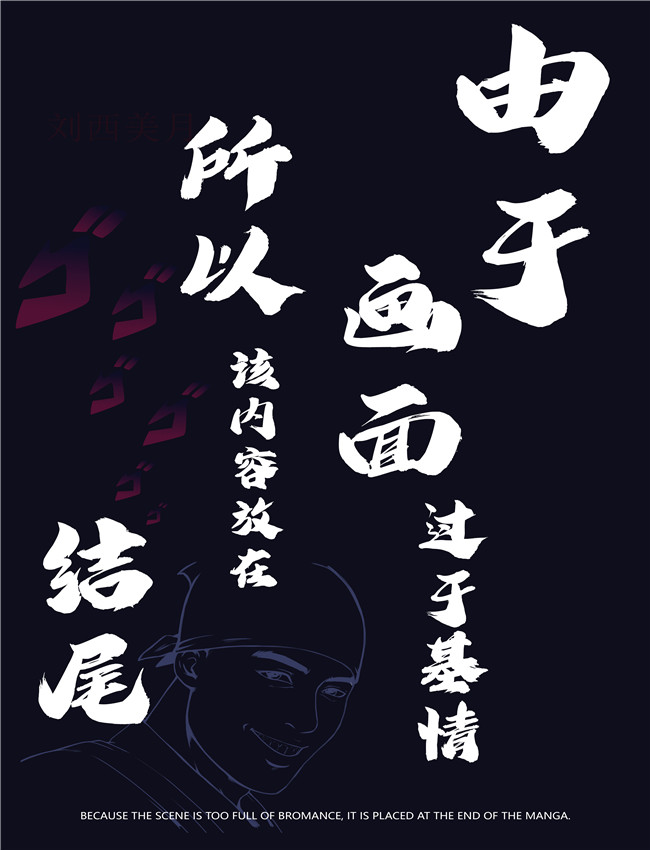 由于
画面
过于基情
所以
该内容放在
结尾
刘西美月
ゴゴゴゴゴゴ
BECAUSE THE SCENE IS TOO FULL OF BROMANCE, IT IS PLACED AT THE END OF THE MANGA.